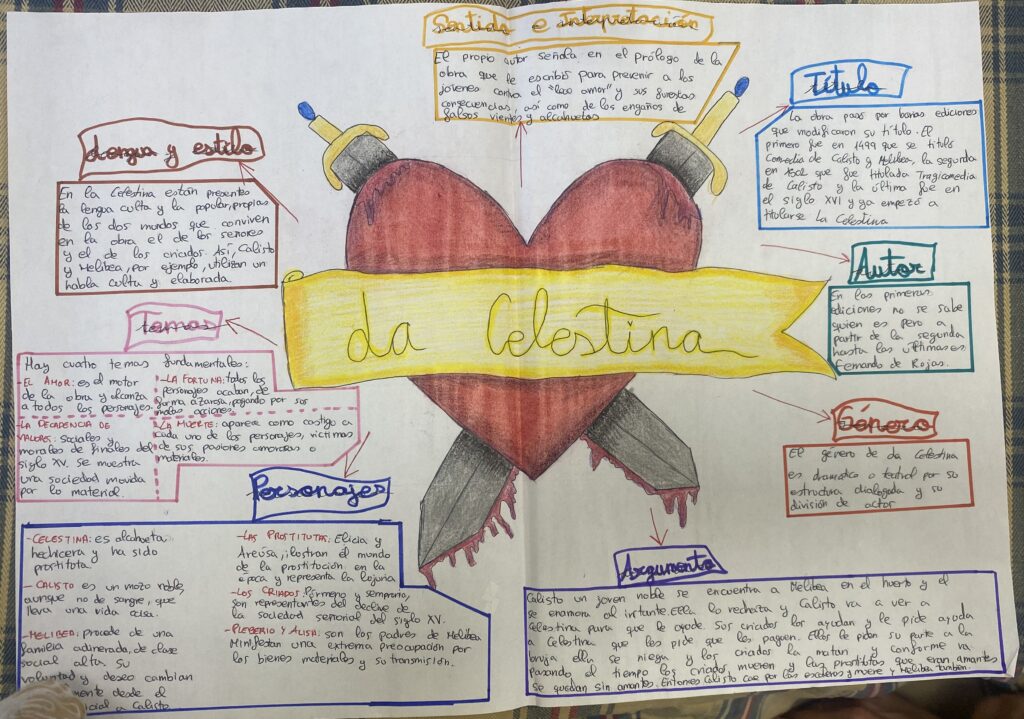 Sentido e Interpretación
El propio autor señala en el prólogo de la
obra que le escribió para prevenir a los
jóvenes contra el "loco amor" y sus funestas
consecuencias, así como de los engaños de
falsos vientes y alcahuetas
Título
La obra pasó por barias ediciones
que modificaron su título. El
primero fue en 1499 que se tituló
Comedia de Calisto y Melibea, la segunda
en que fue titulada Tragicomedia
de Calisto y la última fue en
el siglo XVI y ya empezó a
titularse La Celestina
Lengua y estilo
En la Celestina están presentes
la lengua culta y la popular, propias
de los dos mundos que conviven
en la obra el de los señores
y el de los criados. Así, Calisto
y Melibea, por ejemplo, utilizan un
habla culta y elaborada.
Autor
En las primeras
ediciones no se sabe
quien es pero a
partir de la segunda
hasta las últimas es
Fernando de Rojas.
La Celestina
Temas
Hay cuatro temas fundamentales:
-EL AMOR: es el motor
de la obra y alcanza
a todos los personajes.
-LA FORTUNA: todos los
personajes acaban, de
forma azarosa, pagando por sus
malas acciones.
-LA DECADENCIA DE
VALORES: sociales y
morales de finales del
siglo XV. Se muestra
una sociedad movida
por lo material.
-LA MUERTE: aparece como castigo a
cada uno de los personajes, víctimas
de sus pasiones amorosas o
materiales.
Género
El género de La Celestina
es dramático o teatral por su
estructura dialogada y su
división de actor
Personajes
-CELESTINA: es alcahueta,
hechicera y ha sido
prostituta
-CALISTO es un mozo noble,
aunque no de sangre, que
lleva una vida ociosa.
-MELIBEA: procede de una
familia adinerada, de clase
social alta. Su
voluntad y deseo cambian
mente desde el
icial a Calisto
-LAS PROSTITUTAS: Elicia y
Areusa, ilustran el mundo
de la prostitución en la
época y representa la lojuria
-LOS CRIADOS: Pármeno y Sempronio,
son representantes del declive de
la sociedad señorial del siglo XV.
-PLEBERIO Y ALISA: son los padres de Melibea
Minifestan una extrema preocupación por
los bienes materiales y su transmisión.
Argumento
Calisto un joven noble se encuentra a Melibea en el huerto y el
se enamora al instante. Ella lo rechaza y Calisto va a ver a
Celestina para que le ayude. Sus criados los ayudan y le pide ayuda
a Celestina que les pide que les paguen. Ellos le piden su parte a la
bruja ella se niega y los criados la matan y conforme va
pasando el tiempo los criados mueren y las prostitutas que eran amantes
se quedan sin amantes. Entonces Calisto cae por las escaleras y muere y Melibea también.